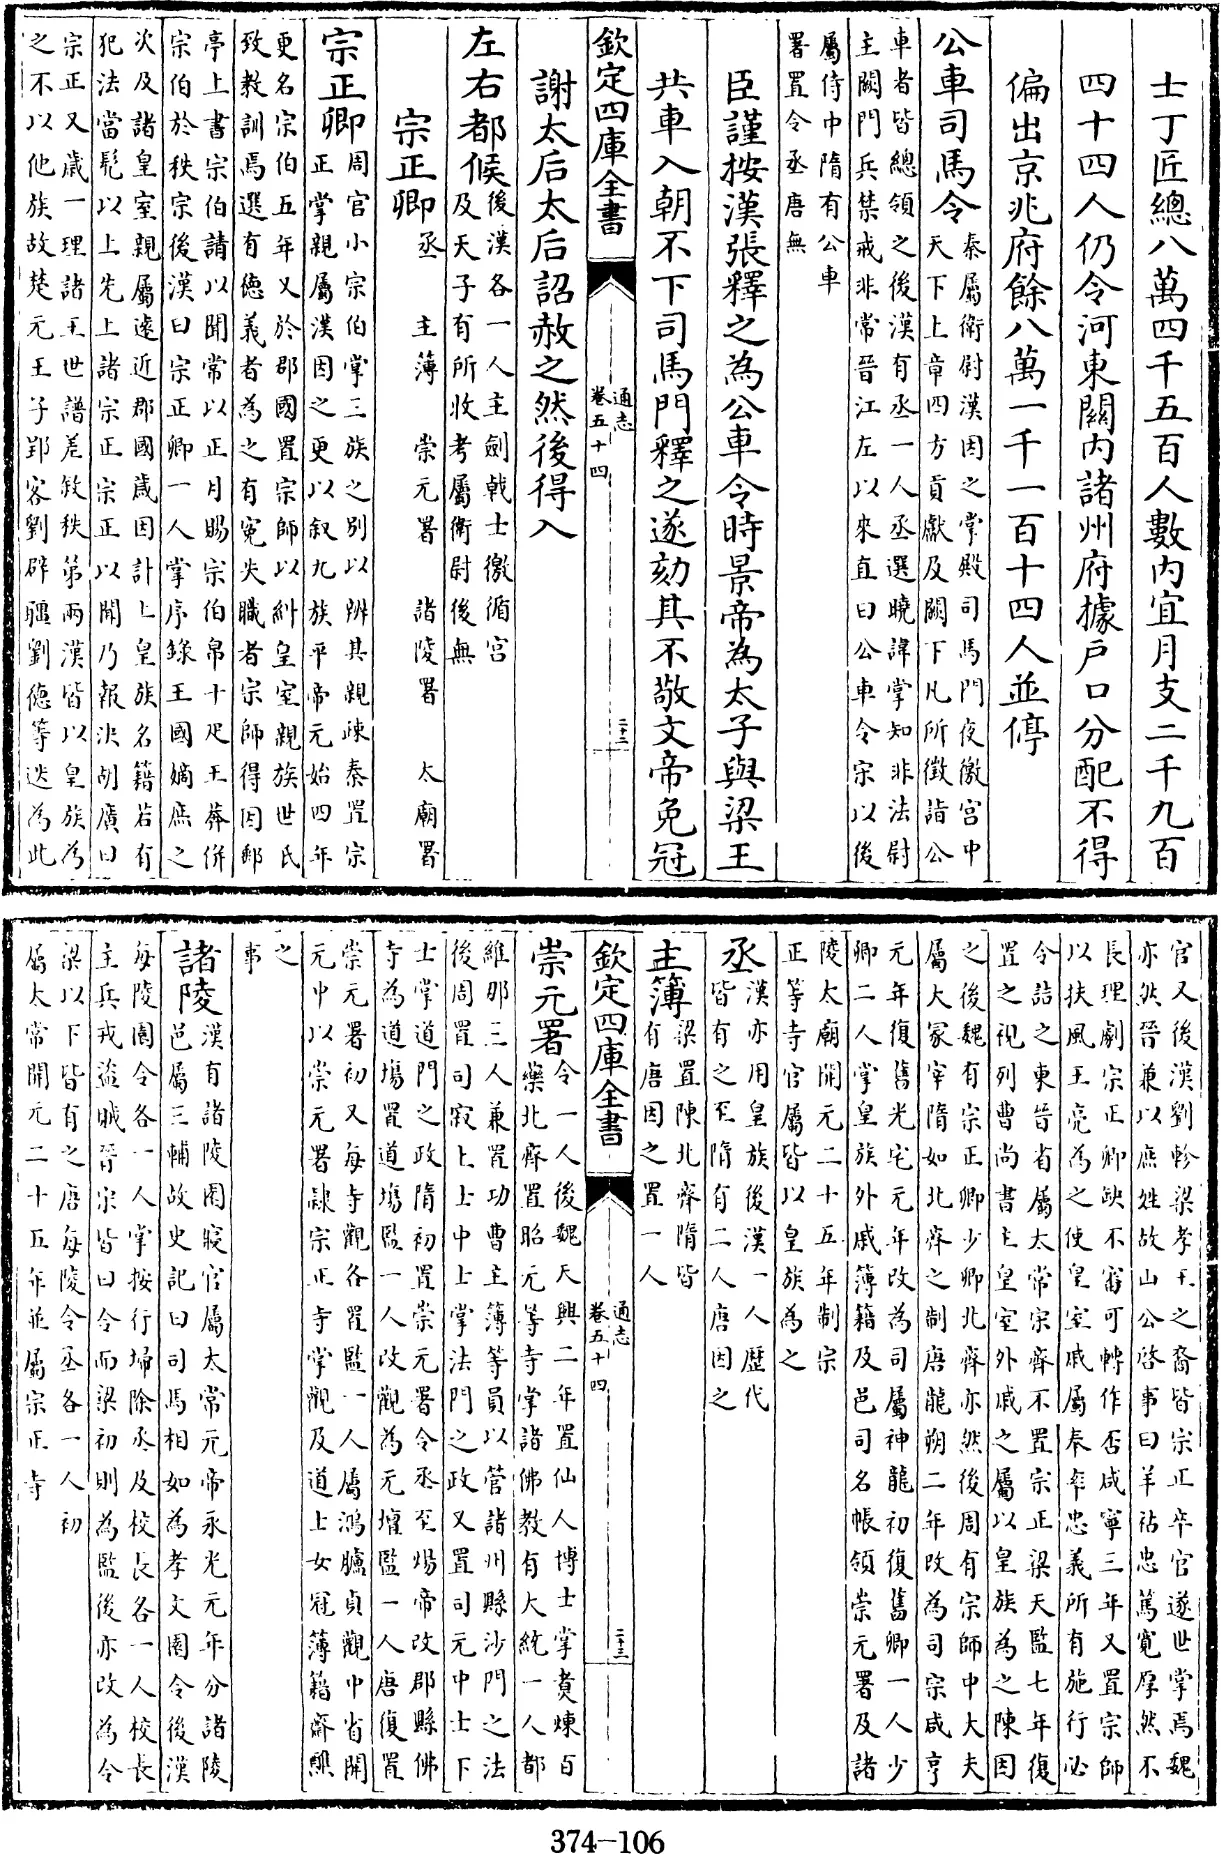 士丁匠總八萬四千五百人數内宜月支二千九百
四十四人仍令河東關内諸州府據戶口分配不得
偏出京兆府餘八萬一千一百十四人並停
公車司馬令秦屬衛尉漢因之掌殿司馬門夜徼宫中
天下上章四方貢獻及闕下凡所徵詣公
車者皆總領之後漢有丞一人丞選曉諱掌知非法尉
主闕門兵禁戒非常晉江左以來直曰公車令宋以後
屬侍中隋有公車
署置令丞唐無
臣謹按漢張釋之為公車令時景帝為太子與梁王
共車入朝不下司馬門釋之遂劾其不敬文帝免冠
欽定四庫全書
通志
卷五十四
二十二
謝太后太后詔赦之然後得入
左右都候後漢各一人主劍戟士徼循宫
及天子有所收考屬衛尉後無
宗正卿丞 主薄 崇元署 諸陵署 太廟署
宗正卿周官小宗伯掌三族之别以辨其親疎秦置宗
正掌親屬漢因之更以叙九族平帝元始四年
更名宗伯五年又於郡國置宗師以糾皇室親族世氏
致教訓焉選有徳義者為之有寃失職者宗師得因郵
亭上書宗伯請以聞常以正月賜宗伯帛十疋王莽併
宗伯於秩宗後漢曰宗正卿一人掌序錄王國嫡庶之
次及諸皇室親屬逺近郡國歲因計上皇族名籍若有
犯法當髡以上先上諸宗正宗正以聞乃報決胡廣曰
宗正又歲一理諸王世譜差敘秩第兩漢皆以皇族為
之不以他族故楚元王子郢客劉辟疆劉徳等迭為此
官又後漢劉軫梁孝王之裔皆宗正卒官遂世掌焉魏
亦然晉兼以庶姓故山公啓事曰羊祜忠篤寛厚然不
長理劇宗正卿缺不審可轉作否咸寧三年又置宗師
以扶風王亮為之使皇室戚屬奉率忠義所有施行必
令諮之東晉省屬太常宋齊不置宗正梁天監七年復
置之視列曹尚書主皇室外戚之屬以皇族為之陳因
之後魏有宗正卿少卿北齊亦然後周有宗師中大夫
屬大冢宰隋如北齊之制唐龍朔二年改為司宗咸亨
元年復舊光宅元年改為司屬神龍初復舊卿一人少
卿二人掌皇族外戚簿籍及邑司名帳領崇元署及諸
陵太廟開元二十五年制宗
正等寺官屬皆以皇族為之
丞漢亦用皇族後漢一人歷代
皆有之至隋有二人唐因之
主簿梁置陳北齊隋皆
有唐因之置一人
欽定四庫全書
通志
卷五十四
二十三
崇元署令一人後魏天興二年置仙人博士掌煑煉百
藥北齊置昭元等寺掌諸佛教有大統一人都
維那三人兼置功曹主簿等員以管諸州縣沙門之法
後周置司寂上士中士掌法門之政又置司元中士下
士掌道門之政隋初置崇元署令丞至煬帝改郡縣佛
寺為道塲置道塲監一人改觀為元壇監一人唐復置
崇元署初又每寺觀各置監一人屬鴻臚貞觀中省開
元中以崇元署隸宗正寺掌觀及道士女冠簿籍齋醮
之
事
諸陵漢有諸陵園寢官屬太常元帝永光元年分諸陵
邑屬三輔故史記曰司馬相如為孝文園令後漢
每陵園令各一人掌按行埽除丞及校長各一人校長
主兵戎盜賊晉宋皆曰令而梁初則為監後亦改為令
梁以下皆有之唐每陵令丞各一人初
屬太常開元二十五年並屬宗正寺
374-106